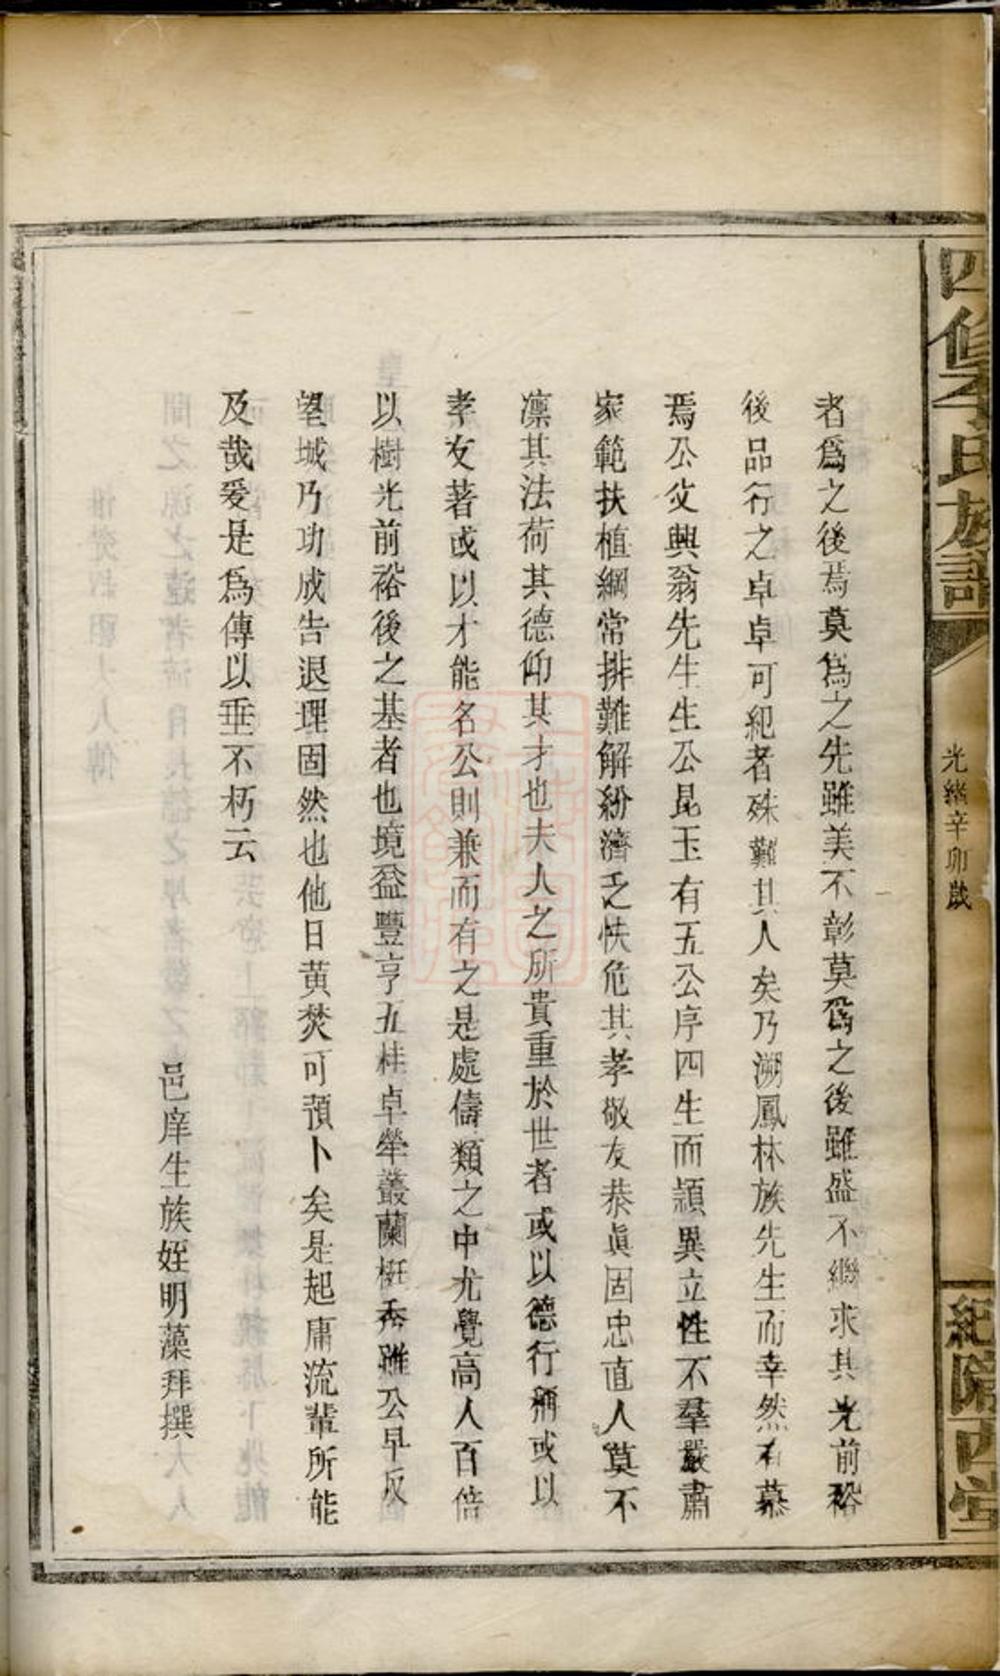 四修李氏族譜
光緒辛卯歲
隴西堂
者爲之後焉莫爲之先雖美不彰莫爲之後雖盛不繼求其光前裕
後品行之卓卓可紀者殊難其人矣乃溯鳳林族先生而幸然有慕
焉公父興翁先生生公昆玉有五公序四生而頴異立性不羣嚴肅
家範扶植綱常排難解紛濟乏怏危其孝敬友恭眞固忠直人莫不
凛其法荷其德仰其才也夫人之所貴重於世者或以德行稱或以
孝友著或以才能名公則兼而有之是處儔類之中尤覺高人百倍
以樹光前裕後之基者也境益豐亨五桂卓犖叢蘭挺秀雖公早反
望城乃功成告退理固然也他日黃焚可預卜矣是起庸流輩所能
及哉爰是為傳以垂不朽云
邑庠生族姪明藻拜撰